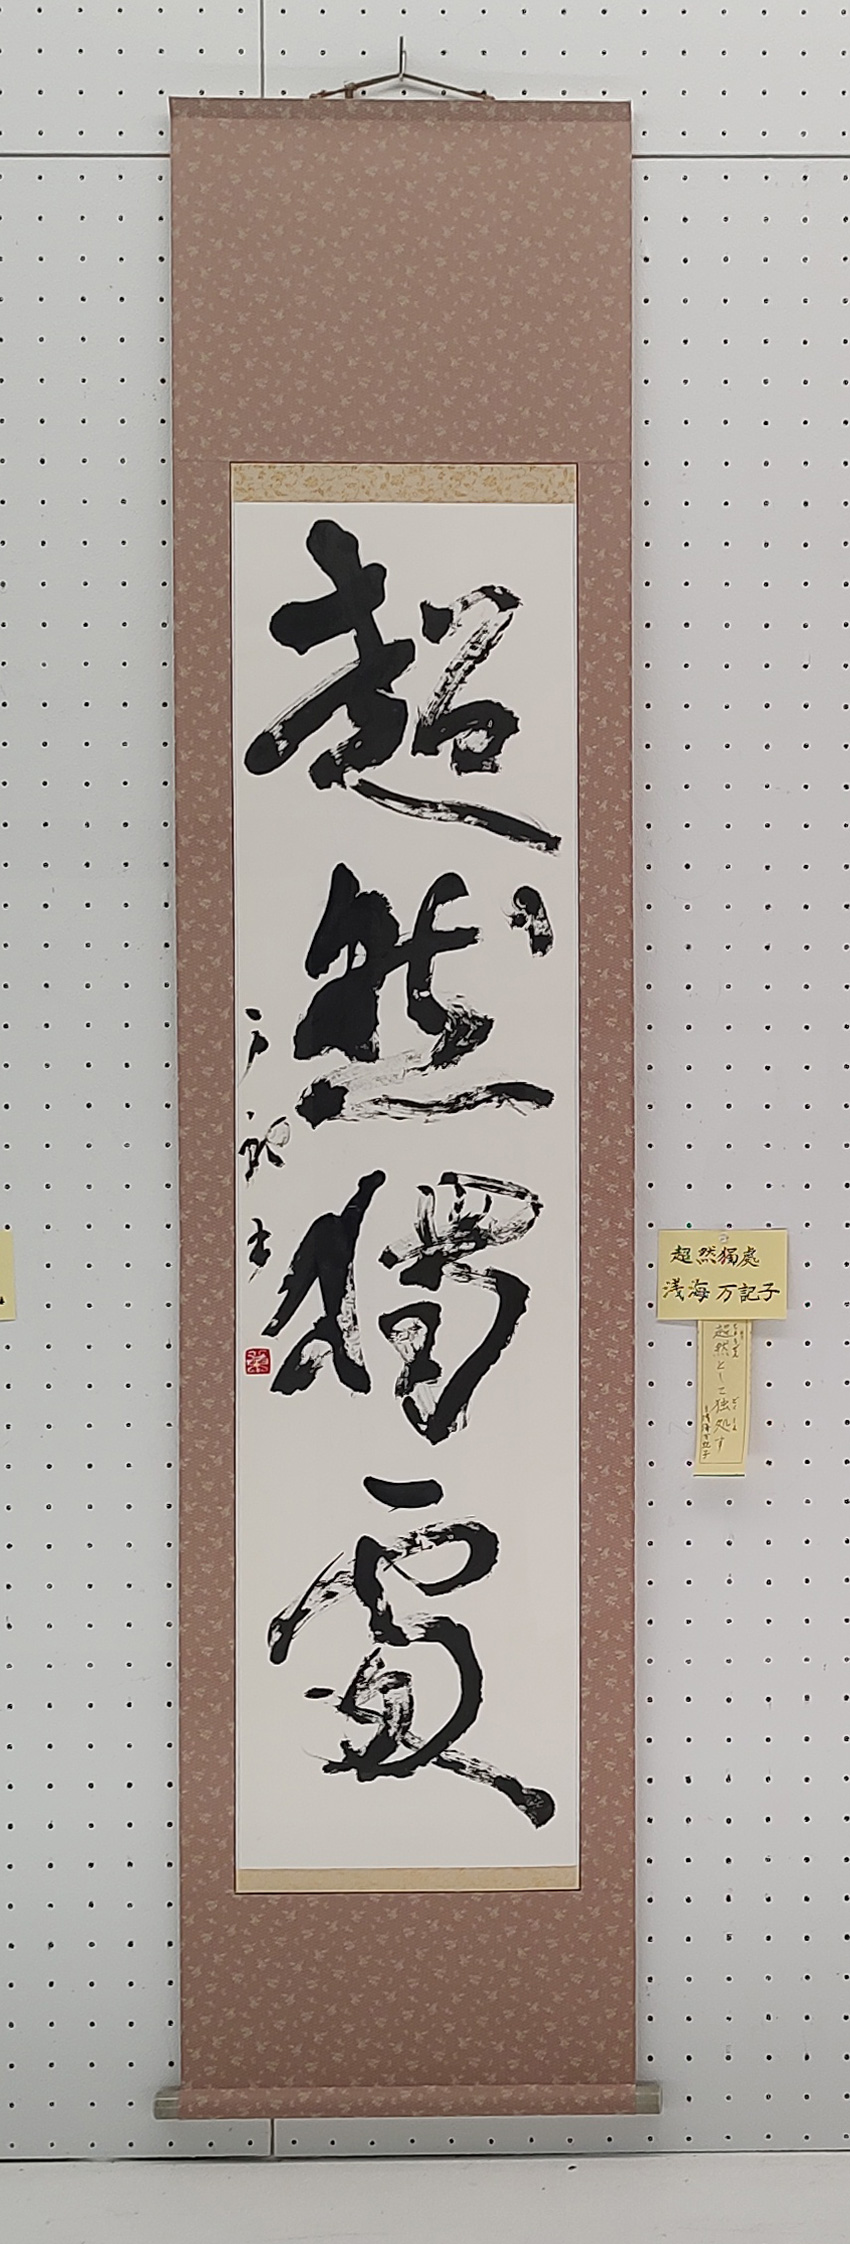 超然獨處
超然獨處
浅海 万記子
超然として独処す